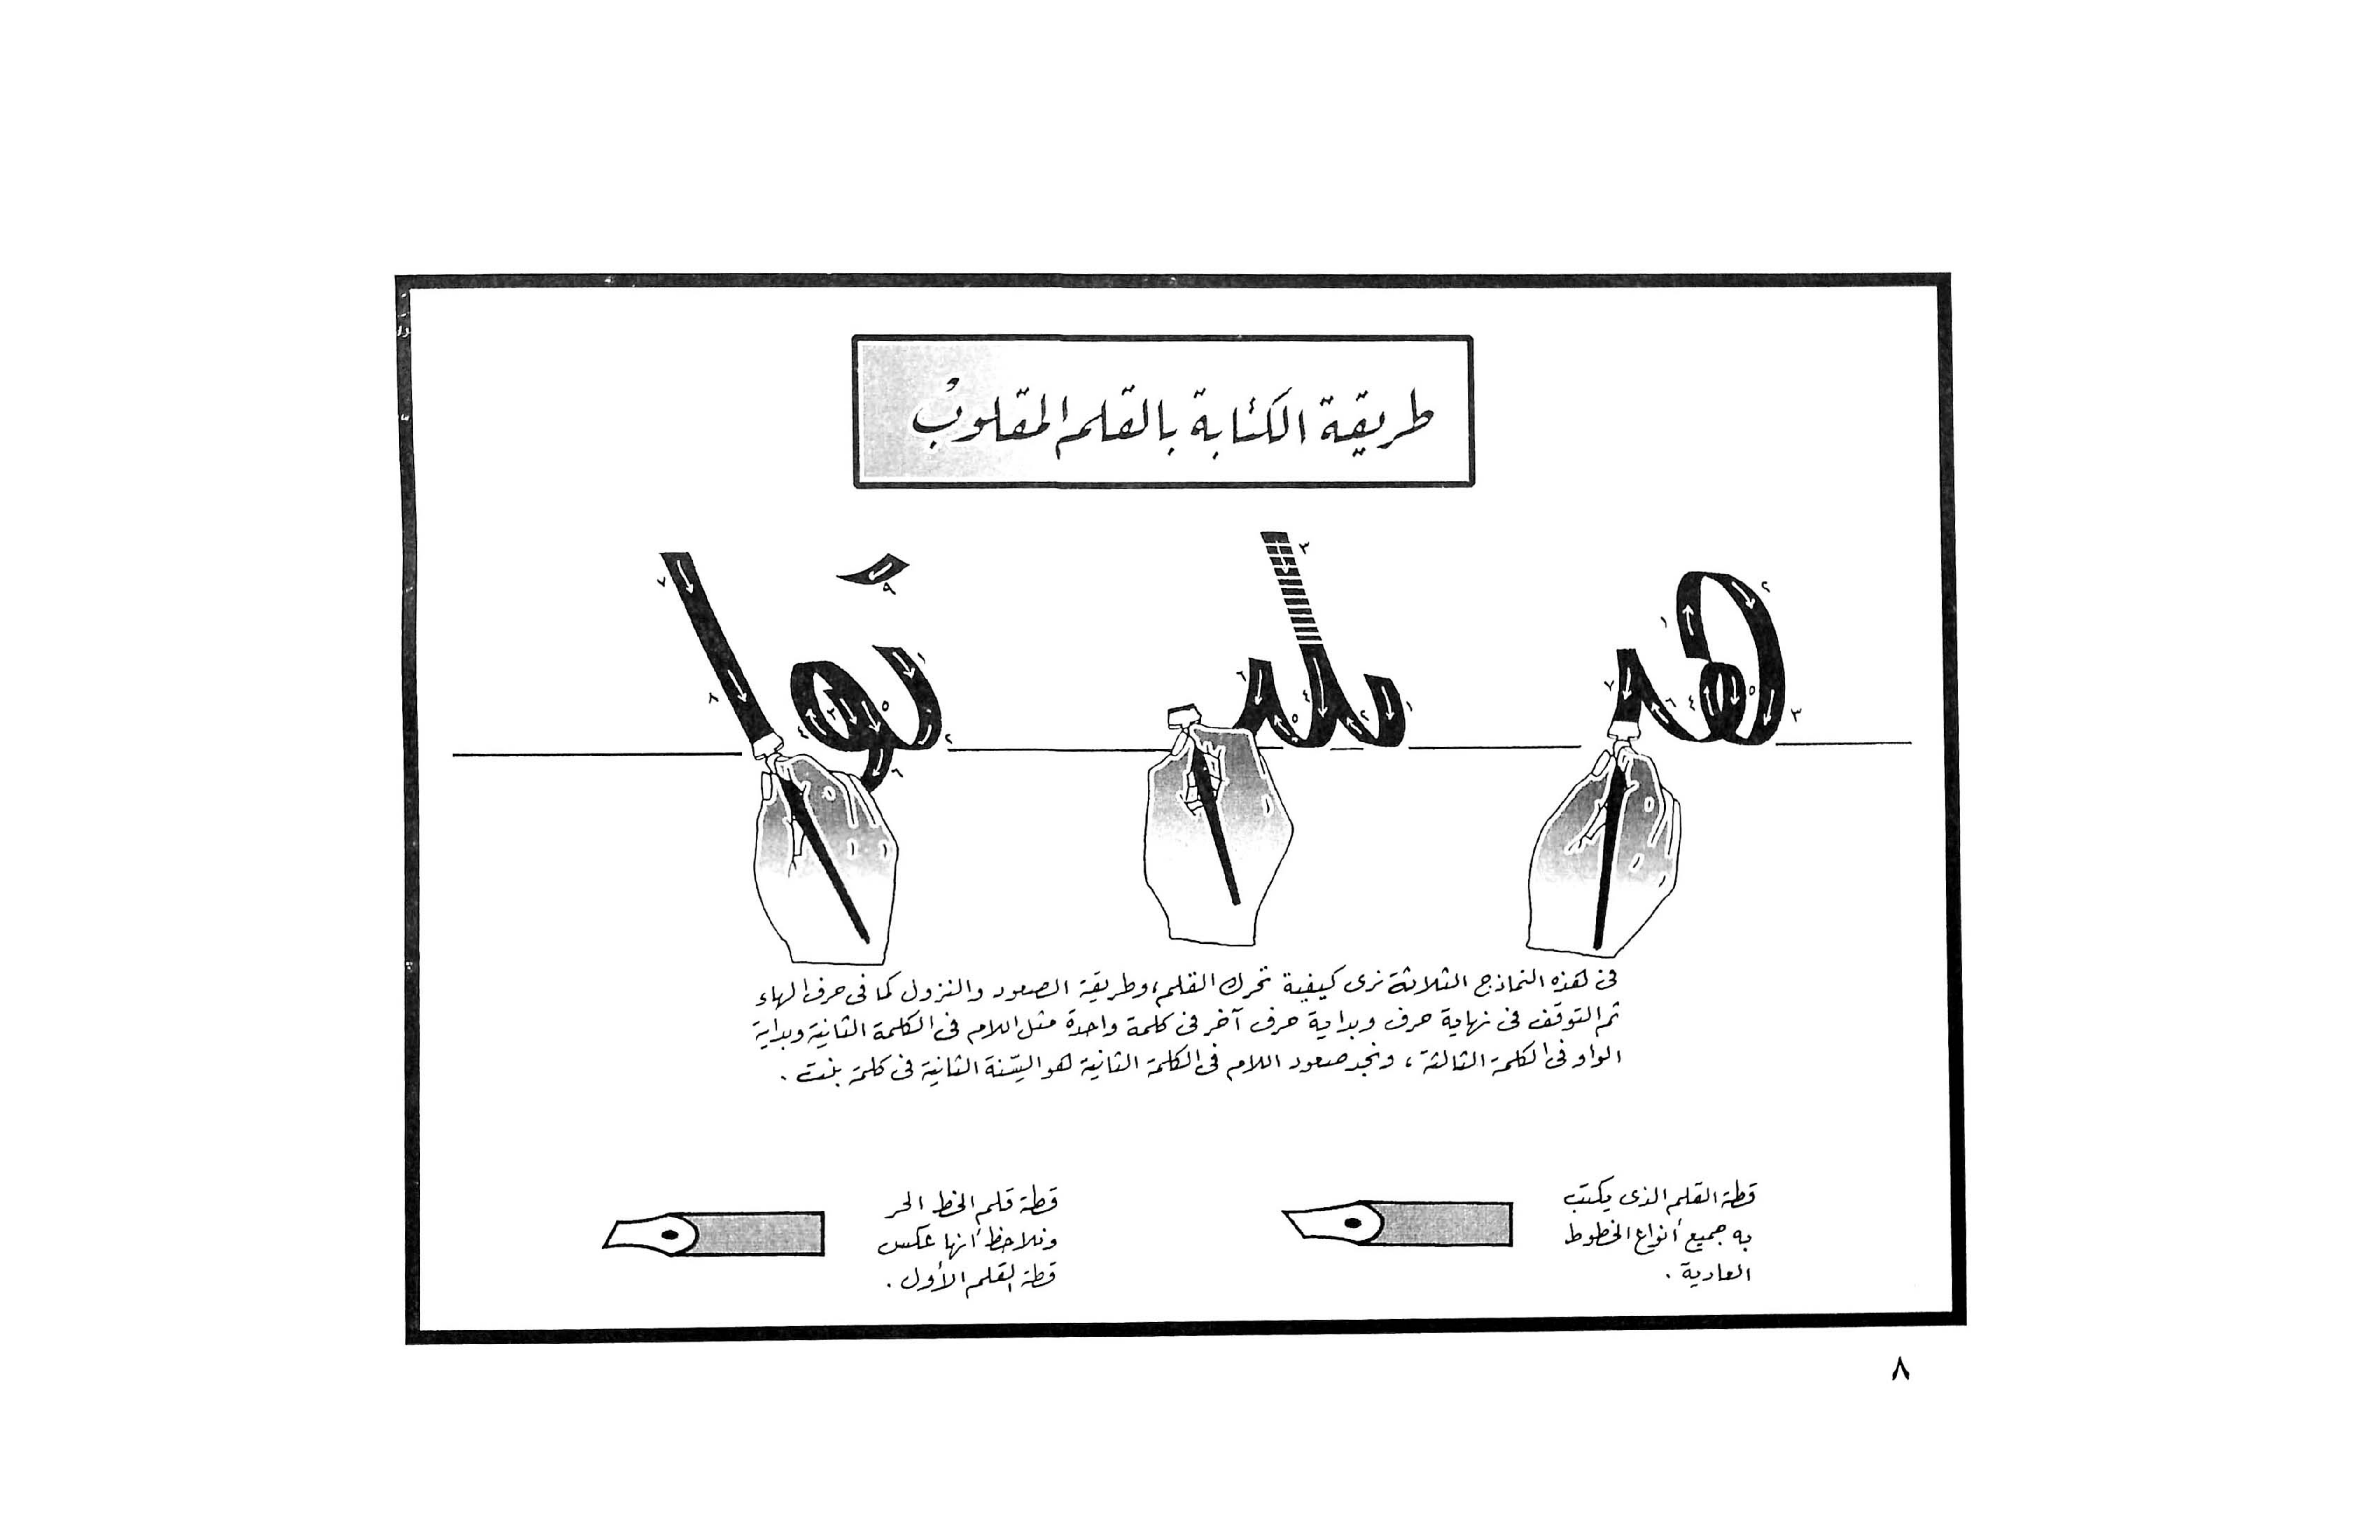 طريقة الكتابة بالقلم المقلوب
١ ٢ ٣ ٤ ٥ ٦ ٧
١ ٢ ٣ ٤ ٥ ٦
١ ٢ ٣ ٤ ٥ ٦ ٧ ٨ ٩
فى هذه النماذج الثلاثة نرى كيفية تحرك القلم، وطريقة الصعود والنزول كما فى حرف الهاء
ثم التوقف فى نهاية حرف وبداية حرف آخر فى كلمة واحدة مثل اللام فى الكلمة الثانية وبداية
الواو فى الكلمة الثالثة، ونجد صعود اللام فى الكلمة الثانية هو السّنة الثانية فى كلمة بنت .
قطة القلم الذى يكتب
به جميع أنواع الخطوط
العادية .
قطة قلم الخط الحر
ونلاحظ أنها عكس
قطة القلم الأول .
٨